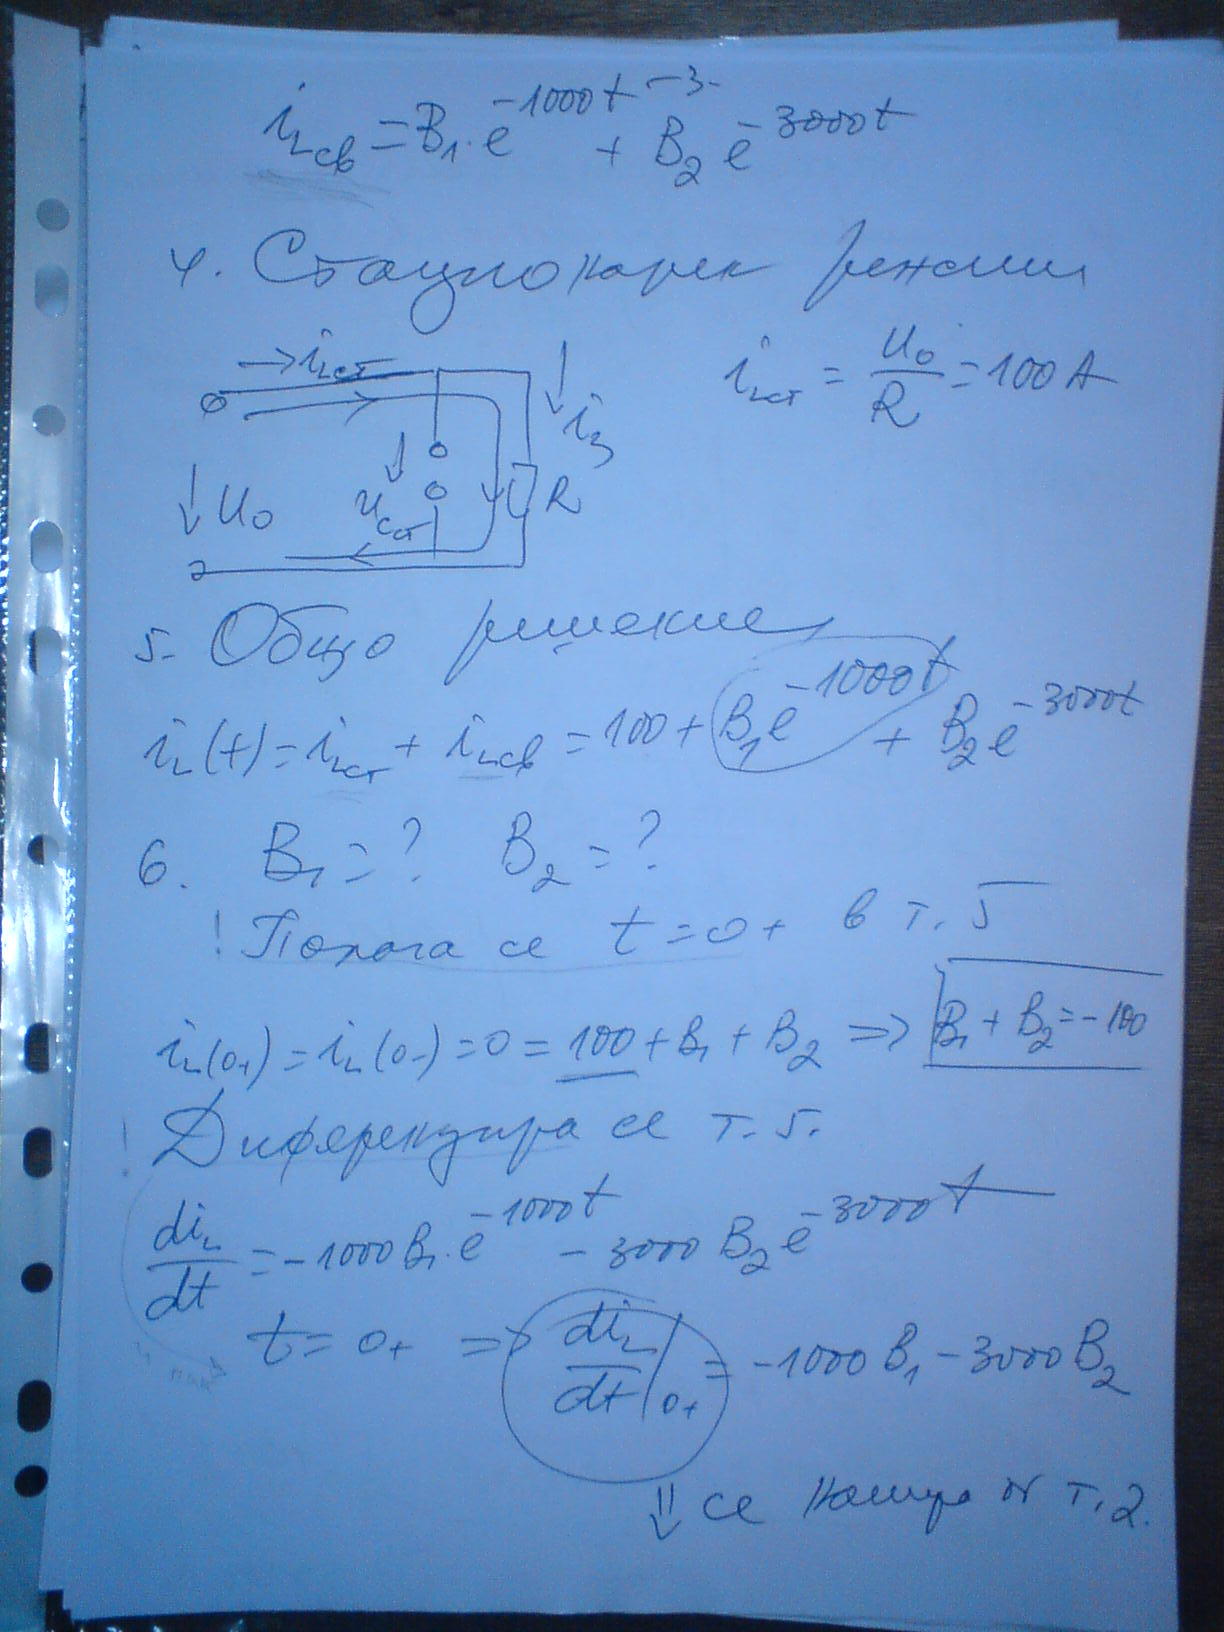 -3-
i_Lсв = B₁.e^-1000t + B₂ e^-3000t
4. Стационарен режим
→ i_Lст
i₃
i_Lст = U₀/R = 100 A
U₀
U_Cст
R
5. Общо решение
i_L(t) = i_Lст + i_Lсв = 100 + B₁e^-1000t + B₂e^-3000t
6. B₁ = ? B₂ = ?
! Полага се t = 0+ в т. 5
i_L(0+) = i_L(0-) = 0 = 100 + B₁ + B₂ ⇒ B₁ + B₂ = -100
! Диференцира се т. 5.
di_L/dt = -1000 B₁.e^-1000t - 3000 B₂e^-3000t
t = 0+ ⇒ di_L/dt|0+ = -1000 B₁ - 3000 B₂
⇓ се намира от т. 2.